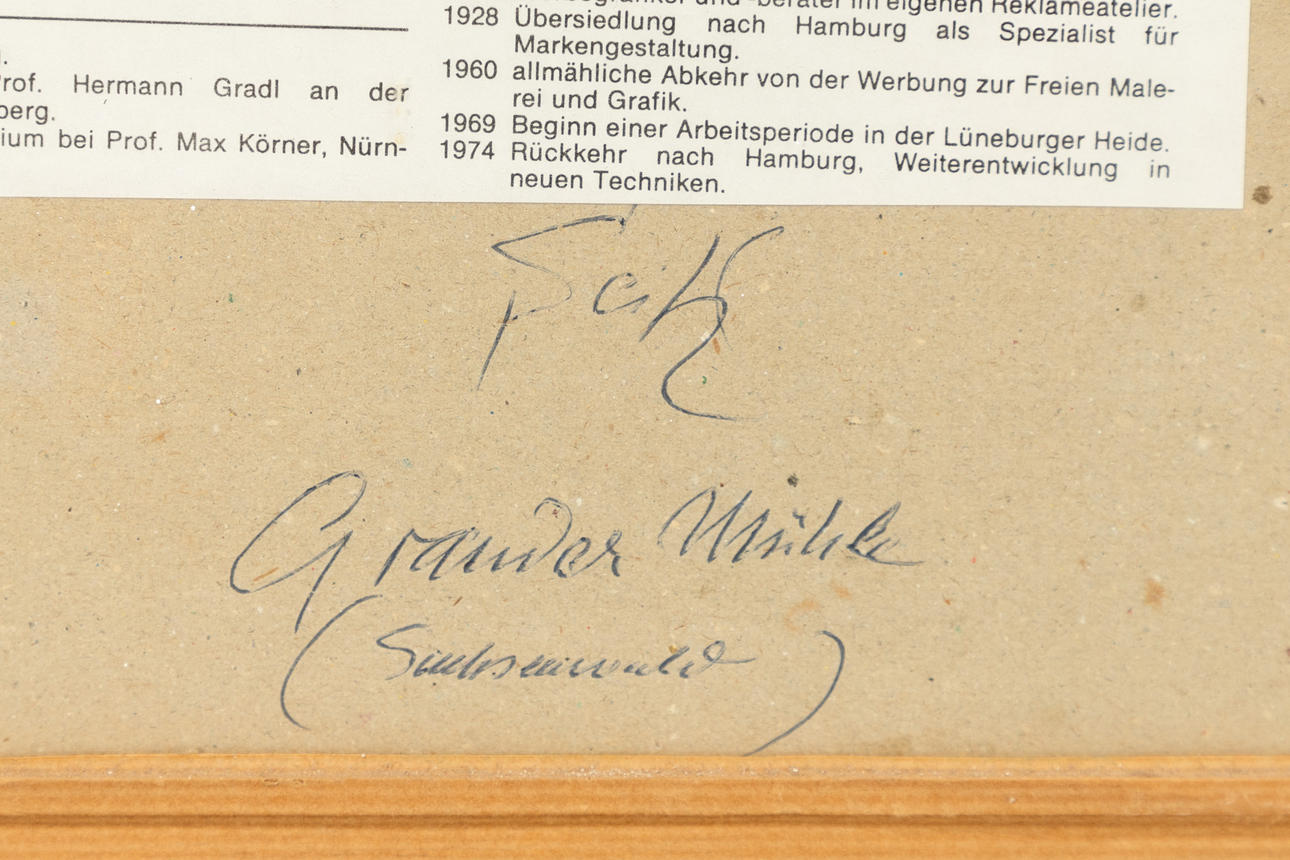 rof. Hermann Gradl an der
berg.
ium bei Prof. Max Körner, Nürn-
und -berater im eigenen Reklameatelier.
1928 Übersiedlung nach Hamburg als Spezialist für
Markengestaltung.
1960 allmähliche Abkehr von der Werbung zur Freien Male-
rei und Grafik.
1969 Beginn einer Arbeitsperiode in der Lüneburger Heide.
1974 Rückkehr nach Hamburg, Weiterentwicklung in
neuen Techniken.
Grander Mühle
(Sachsenwald)